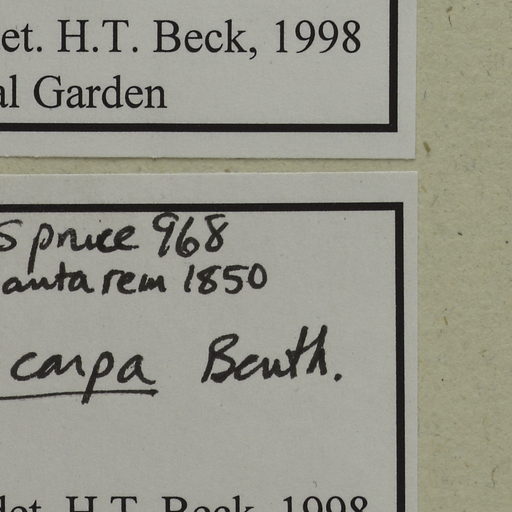 et. H.T. Beck, 1998
al Garden
Spruce 968
antarem 1850
carpa Benth.
det. H.T. Beck, 1998